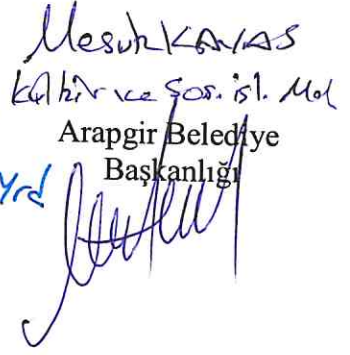 Mesut KAVAS
Kültür ve Sos. işl. Md
Arapgir Belediye
Başkanlığı
Yrd